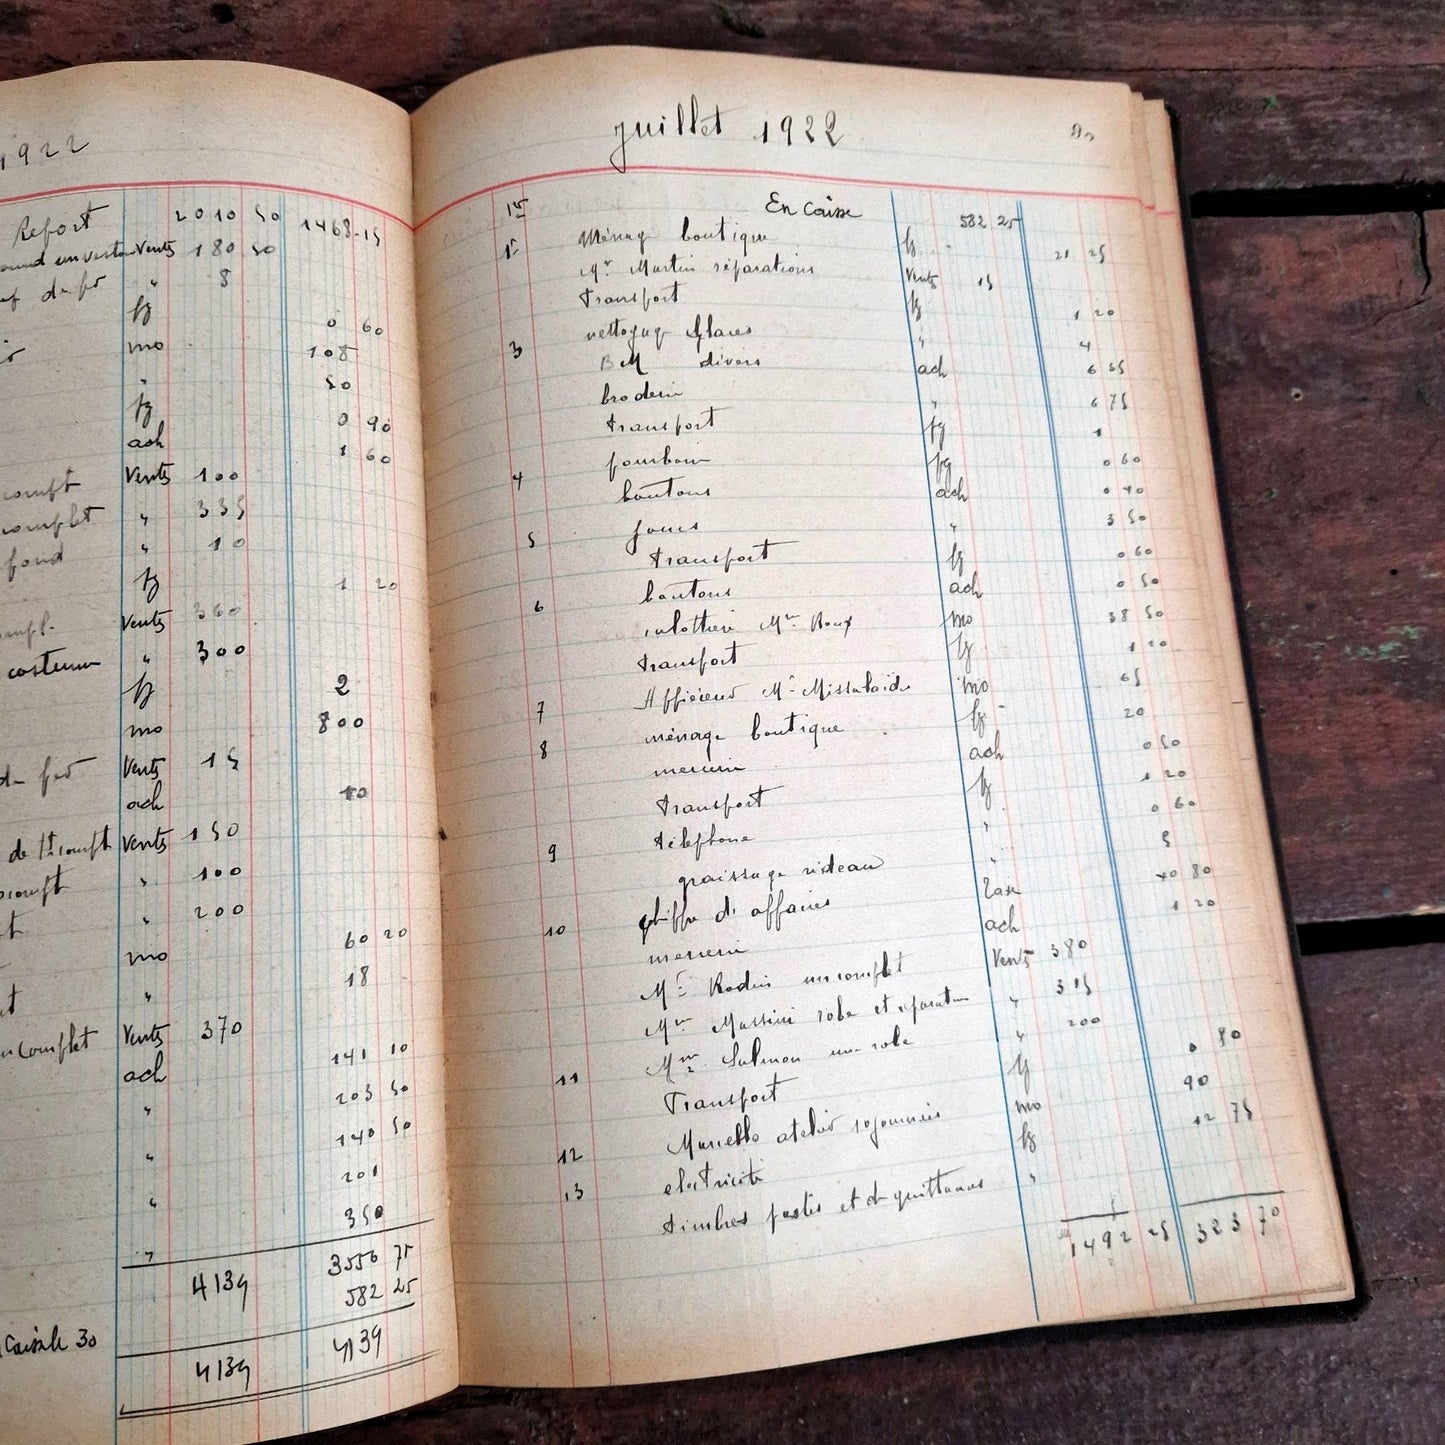 1922
Report 2010 50 1468.15
Vents 180 50
" 8
fg 0 60
mo 108
" 50
fg 0 90
ach 1 60
compt Vents 100
complet " 335
fond " 10
fg 1 20
Vents 360
costume " 300
fg 2
mo 800
Vents 15
ach 10
Vents 150
" 100
" 200
mo 60 20
" 18
complet Vents 370
ach 141 10
" 203 50
140 50
" 201
" 350
" 4139 3556 75
582 25
Caisse le 30
4139 4139
juillet 1922
1er En Caisse 582 25
1er Ménag boutique fg 21 25
Mr Martin réparations Vents 15
Transport fg 1 20
3 nettoyage glaces " 4
BM divers ach 6 65
broderie " 6 75
transport fg 1
4 fg 0 60
boutons ach 0 40
5 " 3 50
transport fg 0 60
6 boutons ach 0 50
culottière Mme Roux mo 38 50
transport fg 1 20
7 mo 65
8 ménage boutique fg 20
mercerie ach 0 50
transport fg 1 20
9 téléphone " 0 60
graissage rideau " 5
10 chiffre d'affaires Taxe 40 80
mercerie ach 1 20
Mr Rodin un complet Vents 380
Mme Massini robe et " 315
11 Mme Salmon une robe " 200
Transport fg 0 80
12 atelier mo 90
13 électricité fg 12 75
timbres postes et de quittances "
1492 25 323 70